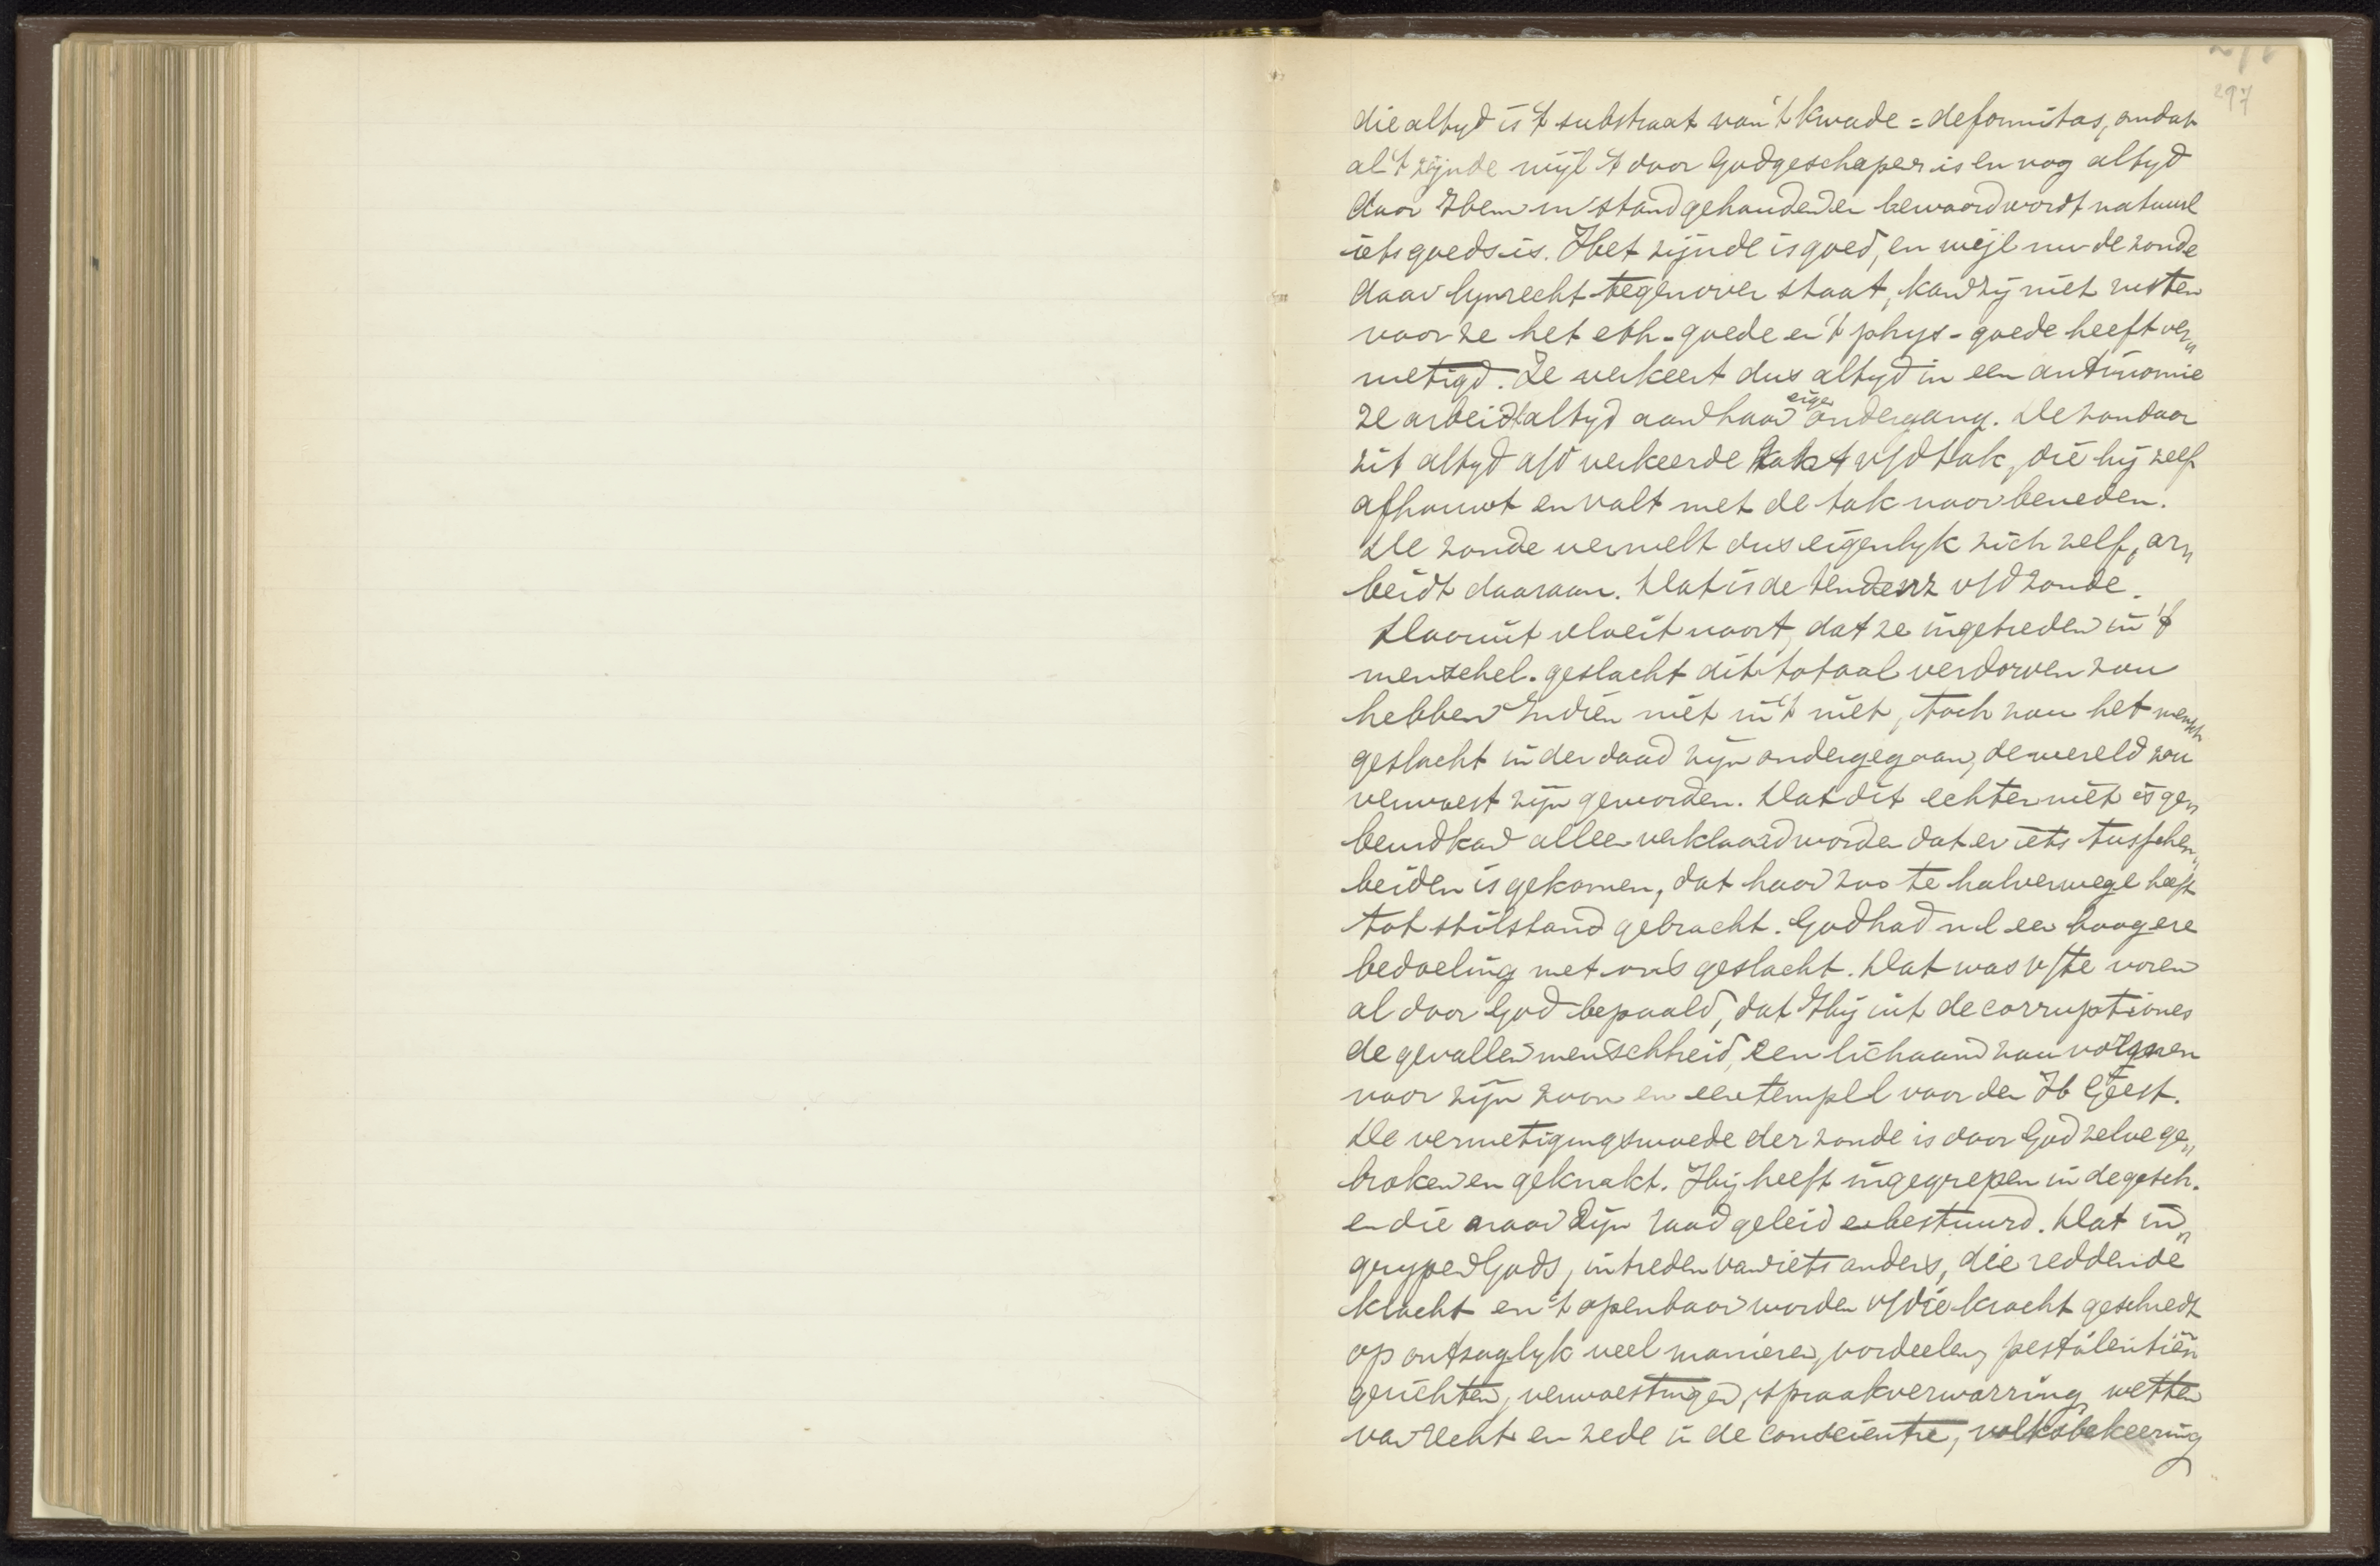 297
die altyd is 't substraat van 't kwade = deformitas, omdat
al 't zijnde wijl 't door God geschapen is en nog altyd
door Hem in stand gehouden en bewaard wordt natuurl
iets goeds is. Het zijnde is goed, en wijl nu de zonde
daar lynrecht tegenover staat, kan zij niet rusten
voor ze het eth-goede en 't phys-goede heeft ver„
nietigd. Ze verkeert dus altyd in een antinomie
ze arbeidt altyd aan haar eigen ondergang. De zondaar
zit altyd a/d verkeerde kant v/d tak, die hij zelf
afhouwt en valt met de tak naar beneden.
De zonde vernielt dus eigenlyk zich zelf, ar„
beidt daaraan. Dat is de tendenz v/d zonde.
Daaruit vloeit voort, dat ze ingetreden in 't
menschel. geslacht dit totaal verdorven zou
hebben Indien niet in 't niet, toch zou het mensch
geslacht in der daad zijn ondergegaan, de wereld zou
verwoest zijn geworden. Dat dit echter niet is ge„
beurd kan alleen verklaard worden dat er iets tusschen„
beiden is gekomen, dat haar zoo te halverwege heeft
tot stilstand gebracht. God had nl een hoogere
bedoeling met ons geslacht. Dat was v/te voren
al door God bepaald, dat Hij uit de corruptiones
de gevallen menschheid, een lichaam zou vormen
voor zijn zoon en een tempel voor den H Geest.
De vernietigingswoede der zonde is door God zelve ge„
broken en geknakt. Hij heeft ingegrepen in de gesch.
en die naar Zijn raad geleid en bestuurd. Dat in„
grypen Gods, intreden van iets anders, die reddende
kracht en 't openbaar worden v/die kracht geschiedt
op ontzaglyk veel manieren, oordeelen, pestilentiën
gerichten, verwoestingen, spraakverwarring, wetten
van recht en zede in de conscientie, volksbekeering